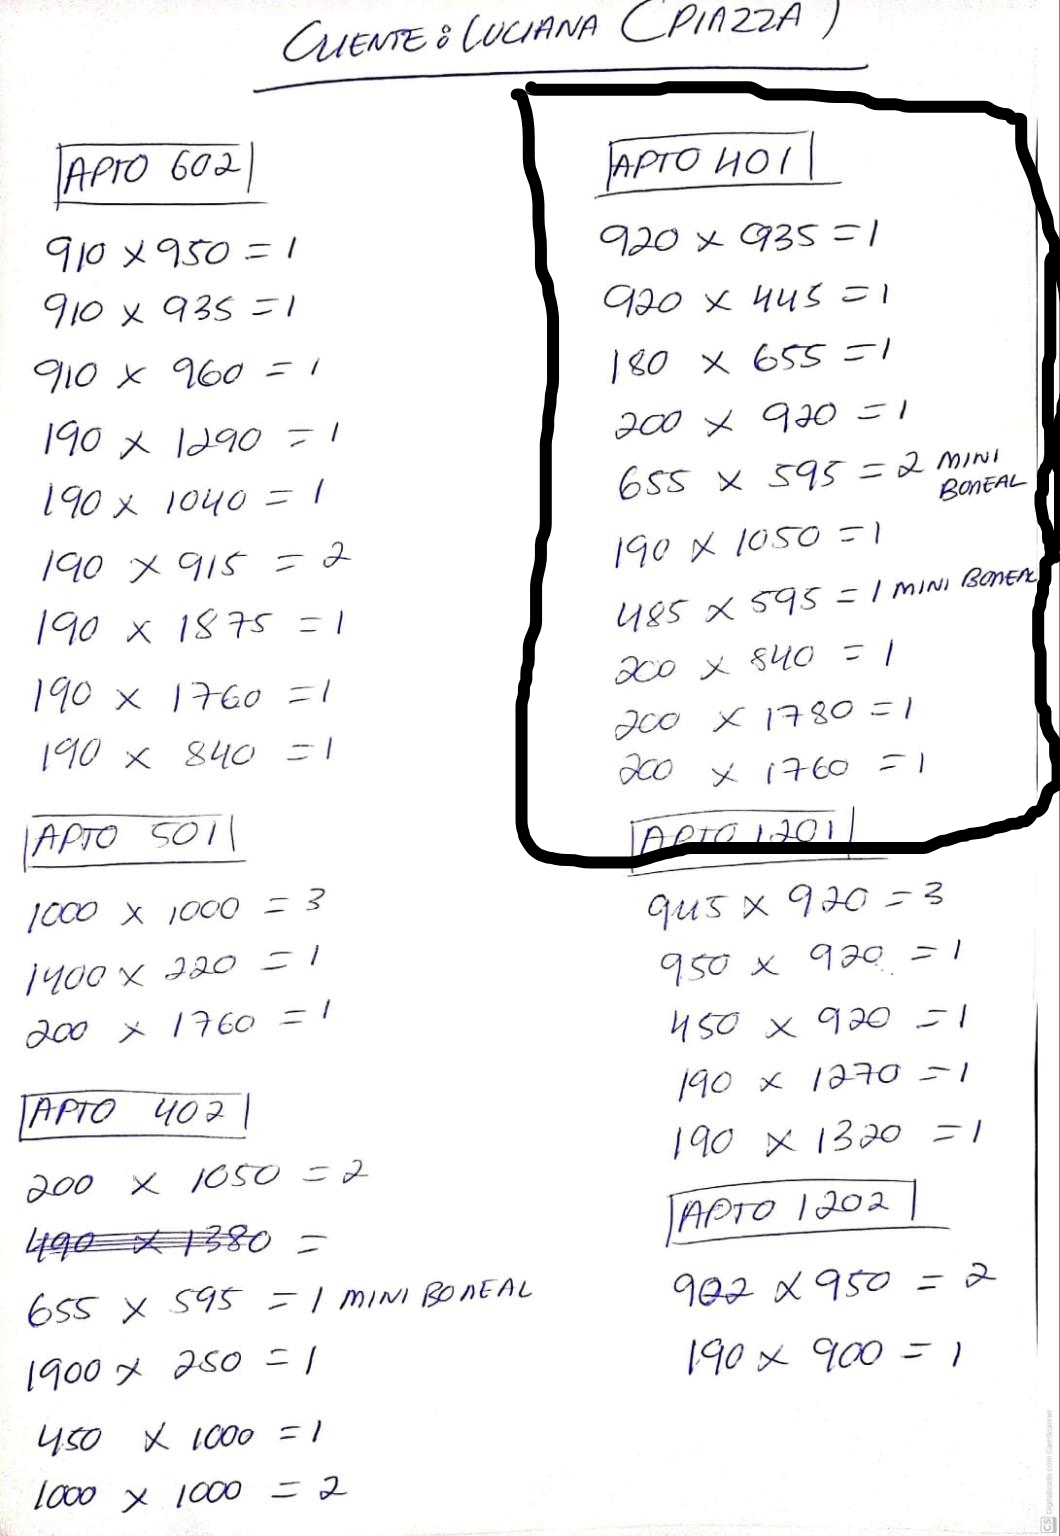 CLIENTE: LUCIANA (PIAZZA)
APTO 602
910 x 950 = 1
910 x 935 = 1
910 x 960 = 1
190 x 1290 = 1
190 x 1040 = 1
190 x 915 = 2
190 x 1875 = 1
190 x 1760 = 1
190 x 840 = 1
APTO 501
1000 x 1000 = 3
1400 x 220 = 1
200 x 1760 = 1
APTO 402
200 x 1050 = 2
490 x 1380 =
655 x 595 = 1 MINI BOREAL
1900 x 250 = 1
450 x 1000 = 1
1000 x 1000 = 2
APTO 401
920 x 935 = 1
920 x 445 = 1
180 x 655 = 1
200 x 920 = 1
655 x 595 = 2 MINI BOREAL
190 x 1050 = 1
485 x 595 = 1 MINI BOREAL
200 x 840 = 1
200 x 1780 = 1
200 x 1760 = 1
APTO 1201
945 x 920 = 3
950 x 920 = 1
450 x 920 = 1
190 x 1270 = 1
190 x 1320 = 1
APTO 1202
x 950 = 2
190 x 900 = 1
CS Digitalizado com CamScanner